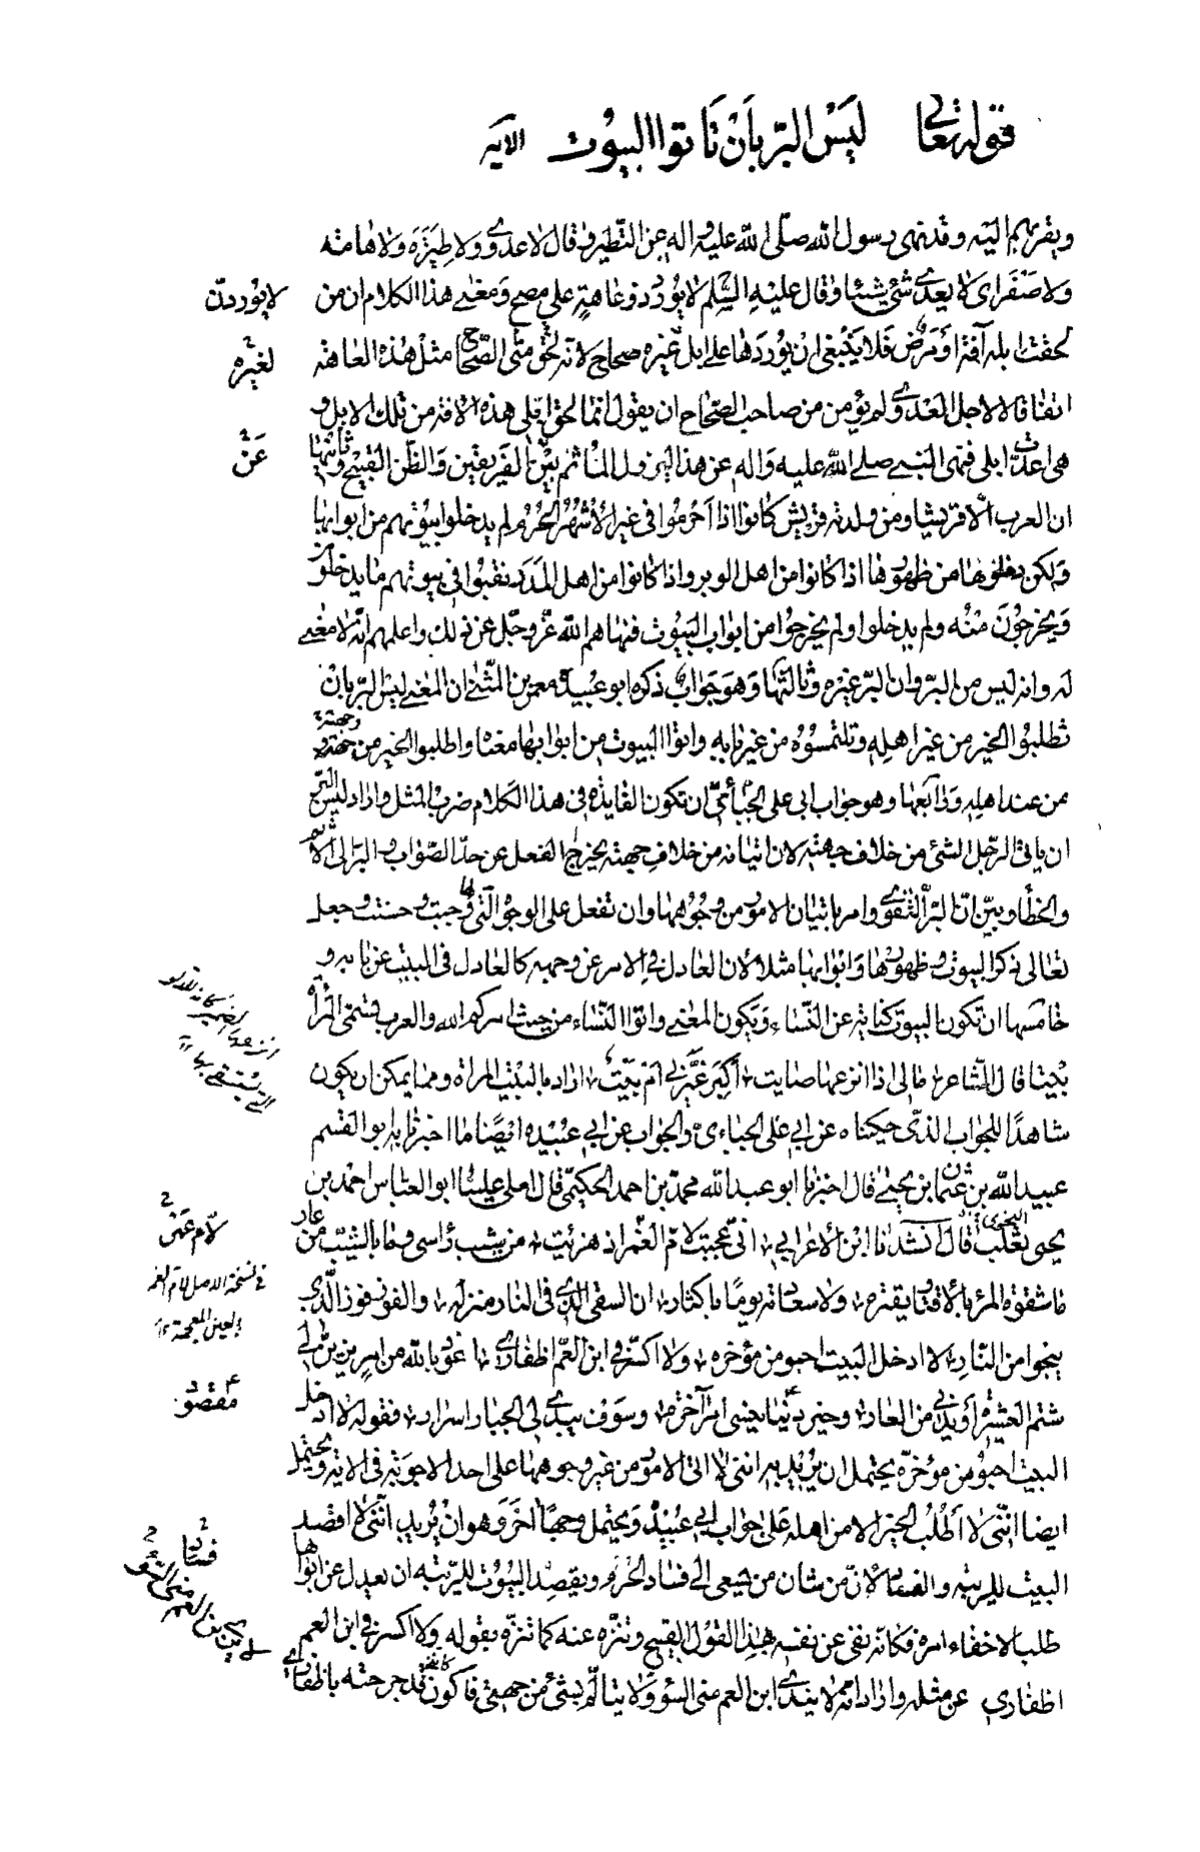 قوله تعالى ليس البر بان تاتوا البيوت الايه
ويقربهم اليه وقد نهى رسول الله صلى الله عليه واله عن التطير وقال لا عدوى ولا طيرة ولا هامة
ولا صفر اى لا يعدى شئ شيئا وقال عليه السلم لا يورد ذو عاهة على مصح ومعنى هذا الكلام ان من
لحقت ابله آفة او مرض فلا ينبغى ان يوردها على ابل غيره صحاح لانه لحق متى الصحاح مثل هذه العاهة
اتفاقا لا لاجل العدوى ولم يؤمن من صاحب الصحاح ان يقول انما لحق ابلى هذه الافة من تلك الابل و
هى اعدت ابلى فنهى النبى صلى الله عليه واله عن هذا ليزول المأثم بين الفريقين والظن القبيح وثانيها
ان العرب الا قريشا ومن ولدته قريش كانوا اذا احرموا فى غير الاشهر الحرم لم يدخلوا بيوتهم من ابوابها
ولكن دخلوها من ظهورها اذا كانوا من اهل الوبر واذا كانوا من اهل المدر نقبوا فى بيوتهم ما يدخلون
ويخرجون منه ولم يدخلوا ولم يخرجوا من ابواب البيوت فنهاهم الله عز وجل عن ذلك واعلمهم انه لا معنى
له وانه ليس من البر وان البر غيره وثالثها وهو جواب ذكره ابو عبيدة معمر بن المثنى ان المعنى ليس البر بان
تطلبوا الخير من غير اهله وتلتمسوه من غير بابه واتوا البيوت من ابوابها معناه واطلبوا الخير من جهته و
من عند اهله ورابعها وهو جواب ابى على الجبائى ان تكون الفايدة فى هذا الكلام ضرب المثل واراد ليس البر
ان ياتى الرجل الشئ من خلاف جهته لان اتيانه من خلاف جهته يخرج الفعل عن حد الصواب والبر الى الاثم
والخطأ وبين ان البر التقوى وامر باتيان الامور من وجوهها وان تفعل على الوجوه التى لها وجبت وحسنت وجعل
تعالى ذكر البيوت وظهورها وابوابها مثلا لان العادل فى الامر عن وجهه كالعادل فى البيت عن بابه و
خامسها ان تكون البيوت كناية عن النساء ويكون المعنى واتوا النساء من حيث امركم الله والعرب تسمى المرأة
بيتا قال الشاعر مالى اذا انزعها صايت اكبر غيرنى ام بيت اراد بالبيت المراة ومما يمكن ان يكون
شاهدا للجواب الذى حكيناه عن ابى على الجباءى والجواب عن ابى عبيده ايضا ما اخبرنا به ابو القسم
عبيد الله بن عثمان بن يحيى قال اخبرنا ابو عبد الله محمد بن احمد الحكيمى قال املى علينا ابو العباس احمد بن
يحيى ثعلب النحوى قال انشدنا ابن الاعرابى انى عجبت لام الغمر اذ هزئت من شيب راسى وما بالشيب من عار
ما شقوة المرء بالاقتار يقتره ولا سعادته يوما باكثار ان الشقى الذى فى النار منزله والفوز فوز الذى
ينجو من النار لا ادخل البيت احبو من مؤخره ولا اكسر فى ابن العم اظفارى اعوذ بالله من امر يزين لى
شتم العشيرة او يدنى من العار وخير دنيا ينسى امر آخرة وسوف يبدى لى الجبار اسرارى فقوله لا ادخل
البيت احبو من مؤخره يحتمل ان يريد به اننى لا اتى الامور من غير وجوهها على احد الاجوبة فى الاية ويحتمل
ايضا اننى لا اطلب الخير الا من اهله على جواب ابى عبيدة ويحتمل وجها آخر وهو ان يريد اننى لا اقصد
البيت للريبة والفساد لان من شان من يسعى الى فساد الحرم ويقصد البيوت للريبة ان يعدل عن ابوابها
طلبا لاخفاء امره فكانه نفى عن نفسه بهذا القول القبيح وتنزه عنه كما تنزه بقوله ولا اكسر فى ابن العم
اظفارى عن مثله واراد انه مما لا يتندى ابن العم منى السوء ولا يتالم بشئ من جهتى فاكون كانى قد جرحته باظفارى
لا يوردن
لغيره
عن
لام عمر
فى نسخة الاصل لام الغمر
بالعين المعجمة
مقصور
فساد